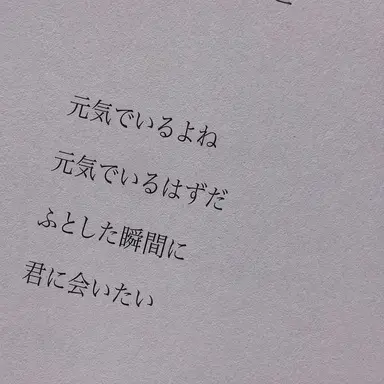 元気でいるよね
元気でいるはずだ
ふとした瞬間に
君に会いたい